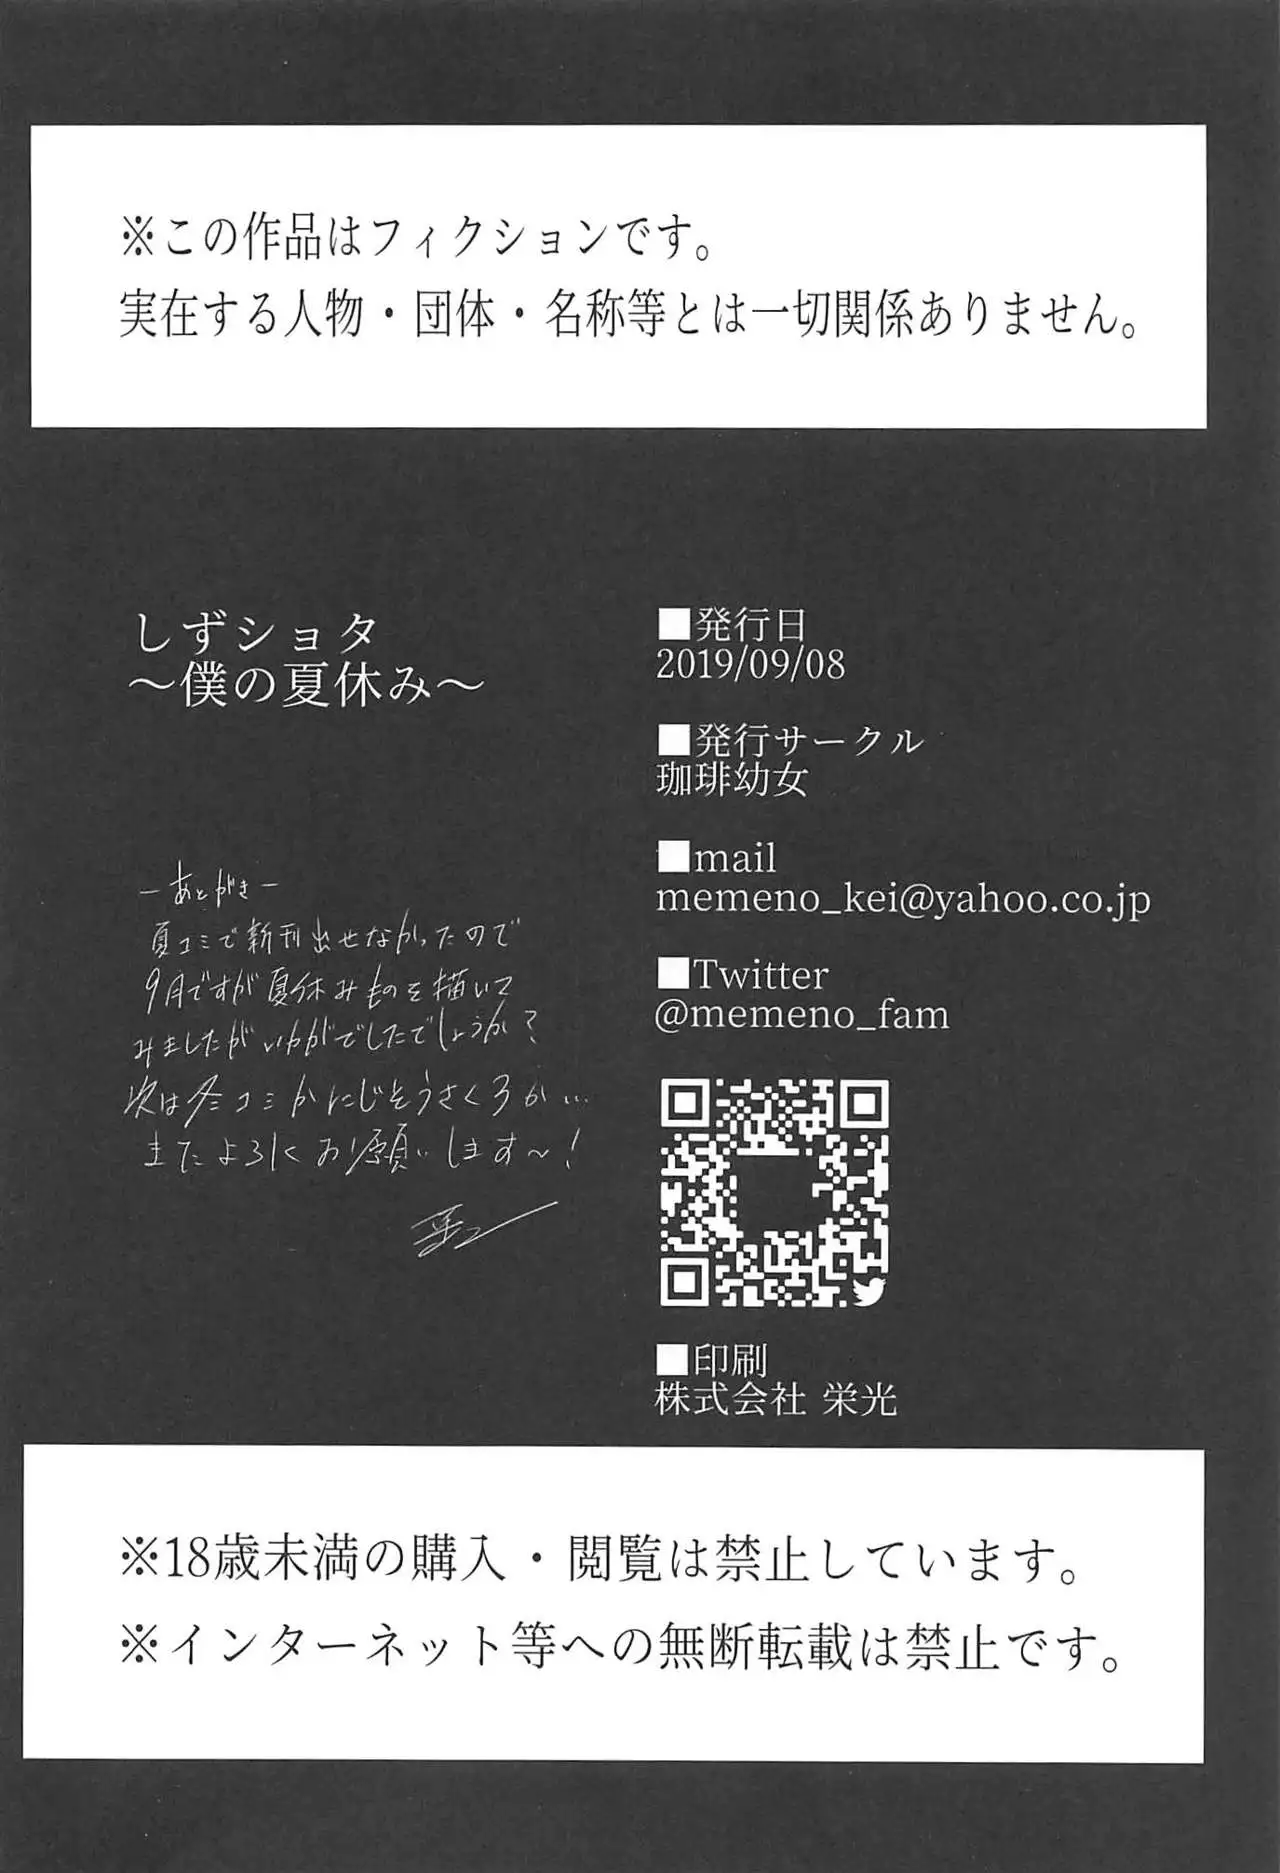 ※この作品はフィクションです。
実在する人物・団体・名称等とは一切関係ありません。
しずショタ
～僕の夏休み～
―あとがき―
夏コミで新刊出せなかったので
9月ですが夏休みものを描いて
みましたがいかがでしたでしょうか?
次は冬コミかにじそうさくろか…
またよろしくお願いします～!
■発行日
2019/09/08
■発行サークル
珈琲幼女
■mail
memeno_kei@yahoo.co.jp
■Twitter
@memeno_fam
■印刷
株式会社 栄光
※18歳未満の購入・閲覧は禁止しています。
※インターネット等への無断転載は禁止です。